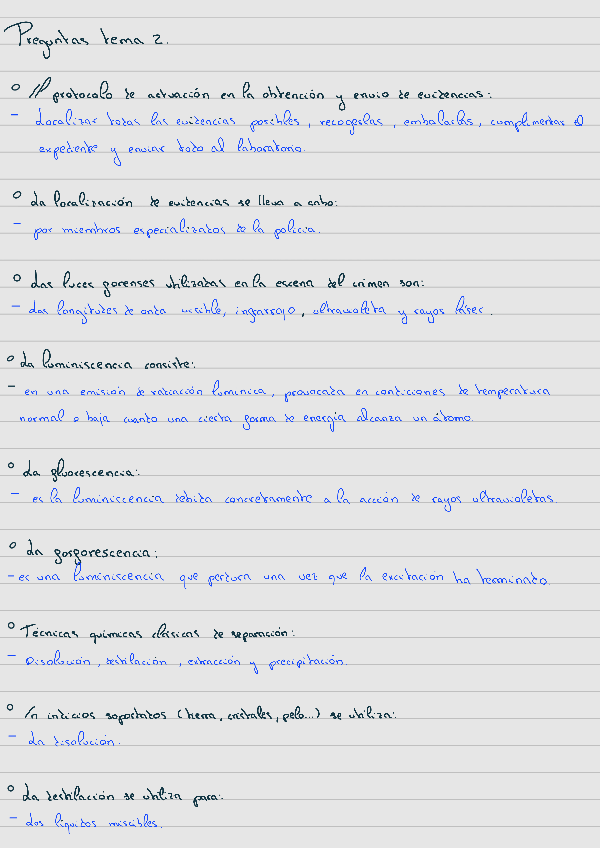 Preguntas tema 2.
° El protocolo de actuación en la obtención y envio de evidencias:
- Localizar todas las evidencias posibles, recogerlas, embalarlas, cumplimentar el
expediente y enviar todo al laboratorio.
° La localización de evidencias se lleva a cabo:
- por miembros especializados de la policia.
° Las luces forenses utilizadas en la escena del crimen son:
- Las longitudes de onda visible, infrarrojo, ultravioleta y rayos láser.
° La luminiscencia consiste:
- en una emisión de radiación luminica, provocada en condiciones de temperatura
normal o baja cuando una cierta forma de energia alcanza un átomo.
° La fluorescencia:
- es la luminiscencia debida concretamente a la acción de rayos ultravioletas.
° La fosforescencia:
- es una luminiscencia que perdura una vez que la excitación ha terminado.
° Técnicas químicas clásicas de separación:
- Disolución, destilación, extracción y precipitación.
° En indicios soportados (tierra, cristales, pelo...) se utiliza:
- La disolución.
° La destilación se utiliza para:
- Los liquidos miscibles.